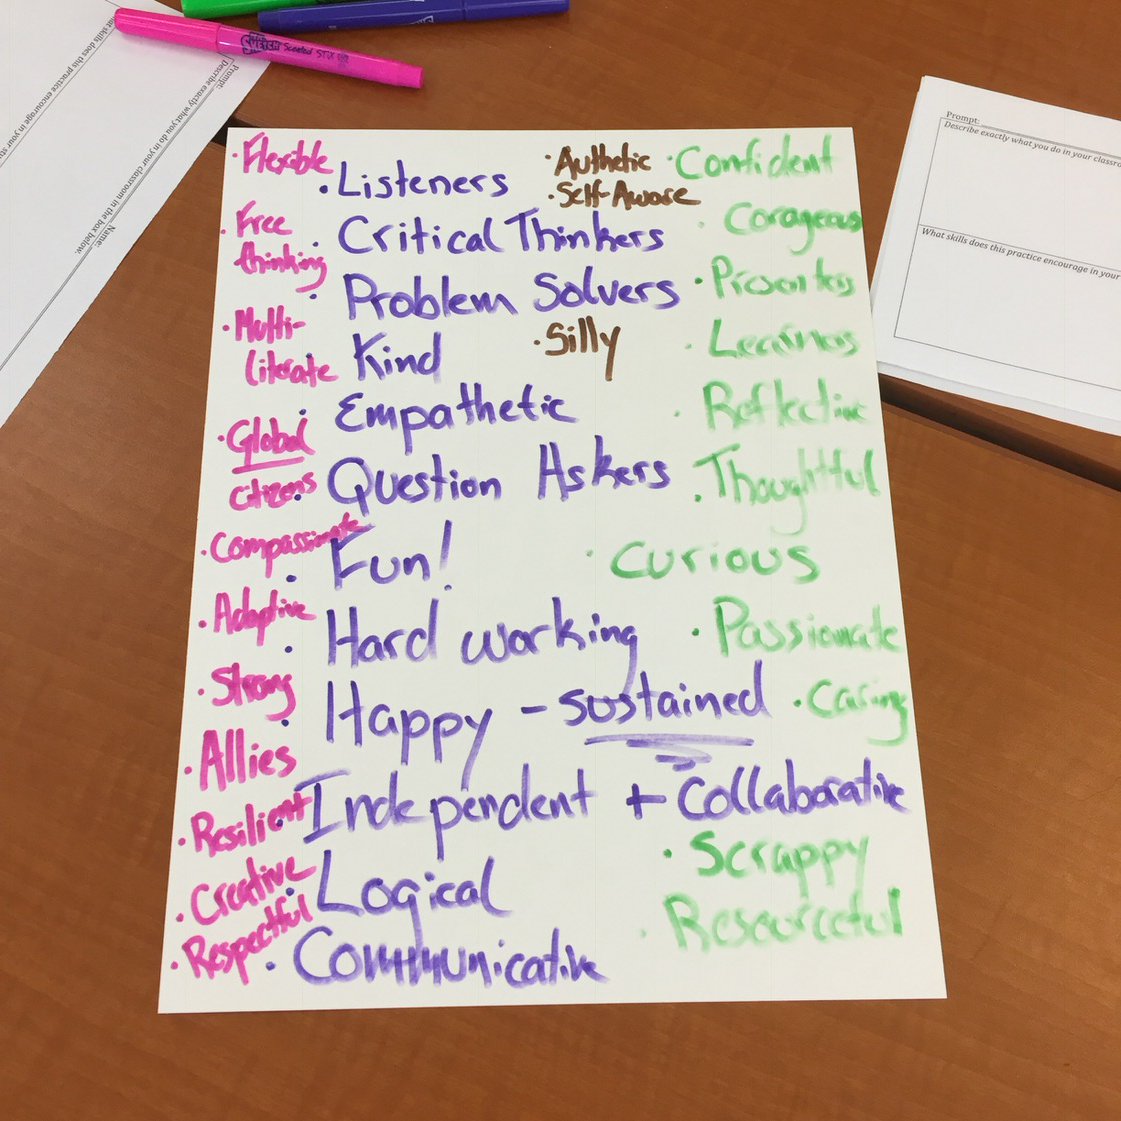 Mr. SKETCH Scented STIX
Prompt:
Describe exactly what you do in your classroom in the box below.
Name:
skills does this practice encourage in your
Prompt:
Describe exactly what you do in your classro
What skills does this practice encourage in your
· Flexible
· Free
thinking
· Multi-
literate
· Global
citizens
· Compassionate
· Adaptive
· Strong
· Allies
· Resilient
· Creative
· Respectful
· Listeners
· Critical Thinkers
· Problem Solvers
· Kind
· Empathetic
· Question Askers
· Fun!
· Hard working
· Happy - sustained
· Independent + Collaborative
· Logical
· Communicative
· Authetic
· Self-Aware
· Silly
· Confident
· Corageous
· Presenters
· Learners
· Reflective
· Thoughtful
· Curious
· Passionate
· Caring
· Scrappy
· Resourceful